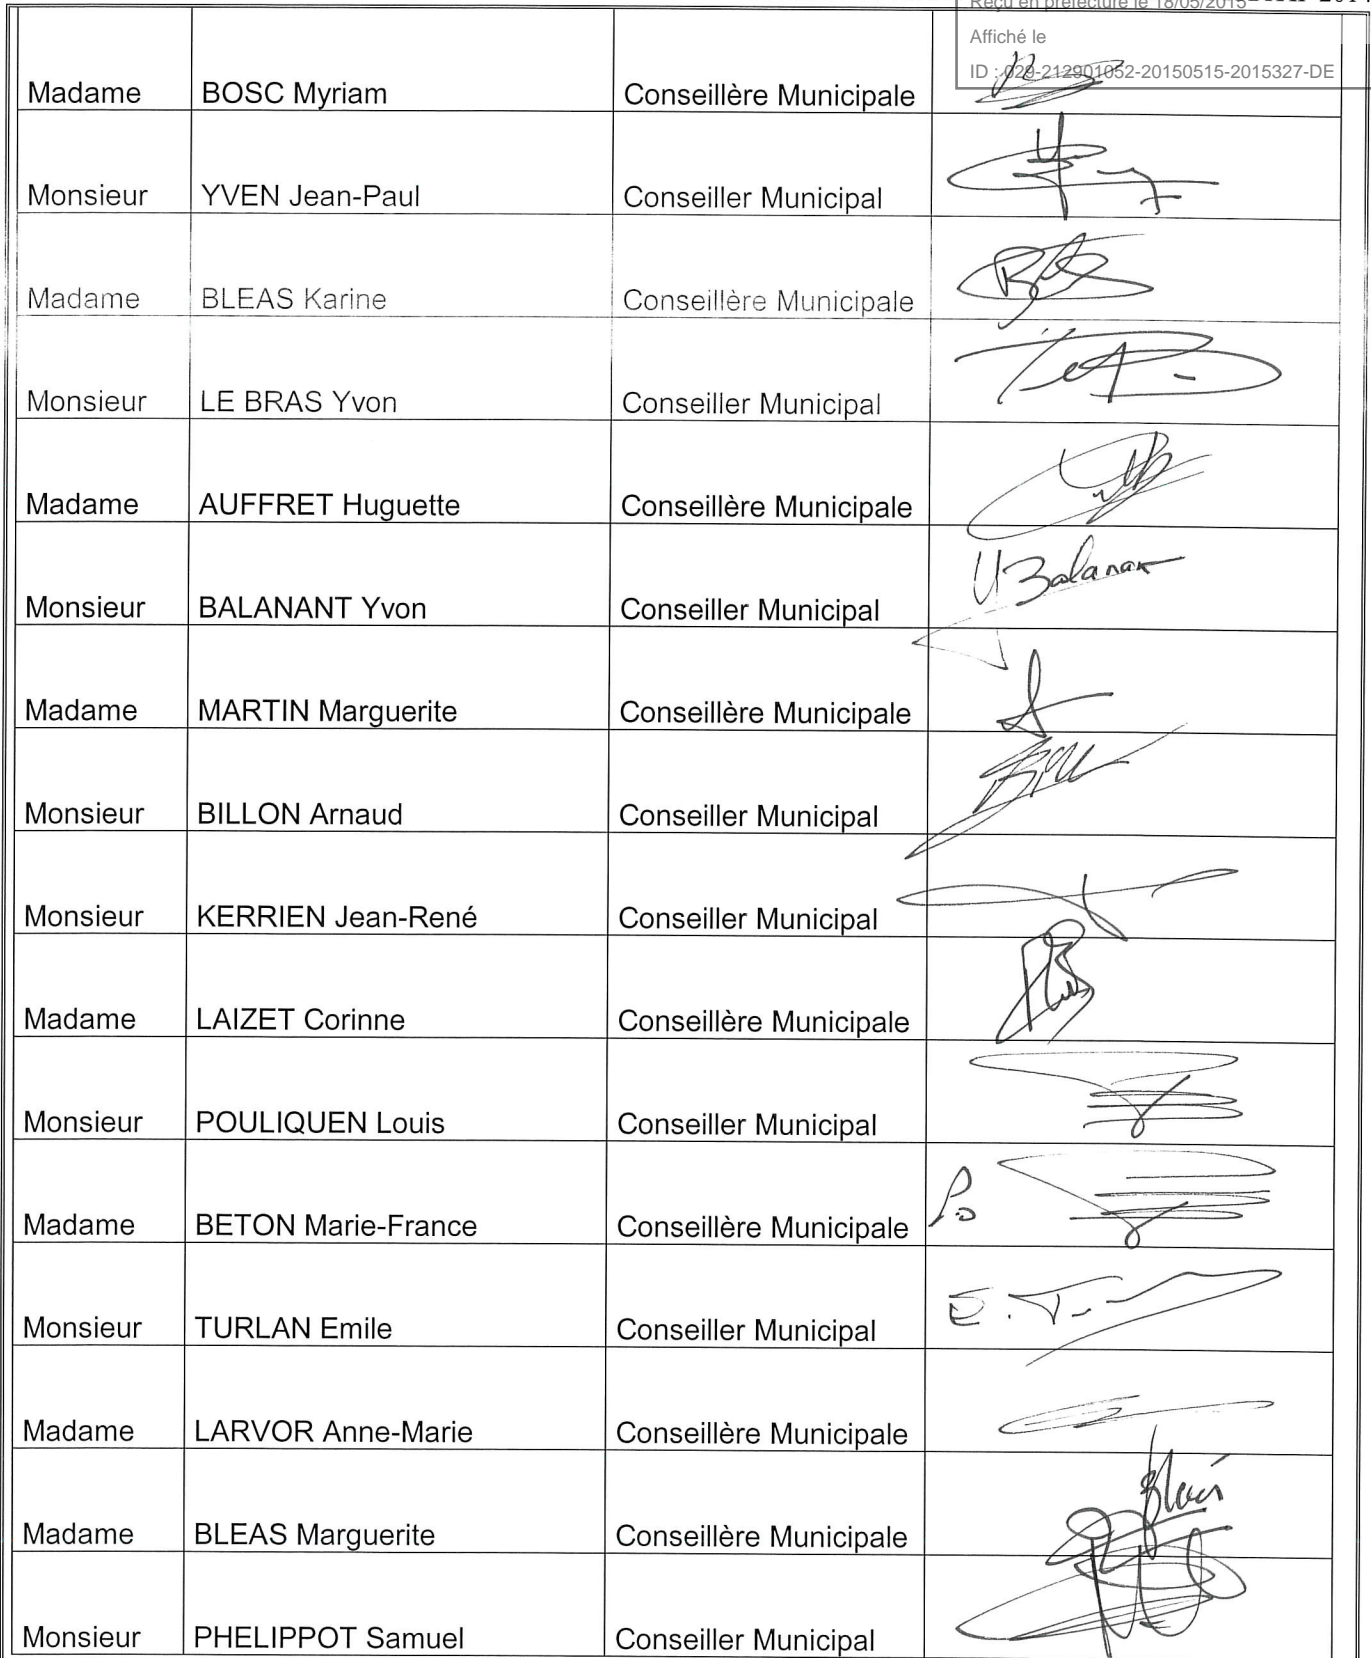 Reçu en préfecture le 18/05/2015
Affiché le
ID : 029-212901052-20150515-2015327-DE
Madame BOSC Myriam Conseillère Municipale
Monsieur YVEN Jean-Paul Conseiller Municipal
Madame BLEAS Karine Conseillère Municipale
Monsieur LE BRAS Yvon Conseiller Municipal
Madame AUFFRET Huguette Conseillère Municipale
Monsieur BALANANT Yvon Conseiller Municipal
Madame MARTIN Marguerite Conseillère Municipale
Monsieur BILLON Arnaud Conseiller Municipal
Monsieur KERRIEN Jean-René Conseiller Municipal
Madame LAIZET Corinne Conseillère Municipale
Monsieur POULIQUEN Louis Conseiller Municipal
Madame BETON Marie-France Conseillère Municipale
Monsieur TURLAN Emile Conseiller Municipal
Madame LARVOR Anne-Marie Conseillère Municipale
Madame BLEAS Marguerite Conseillère Municipale
Monsieur PHELIPPOT Samuel Conseiller Municipal